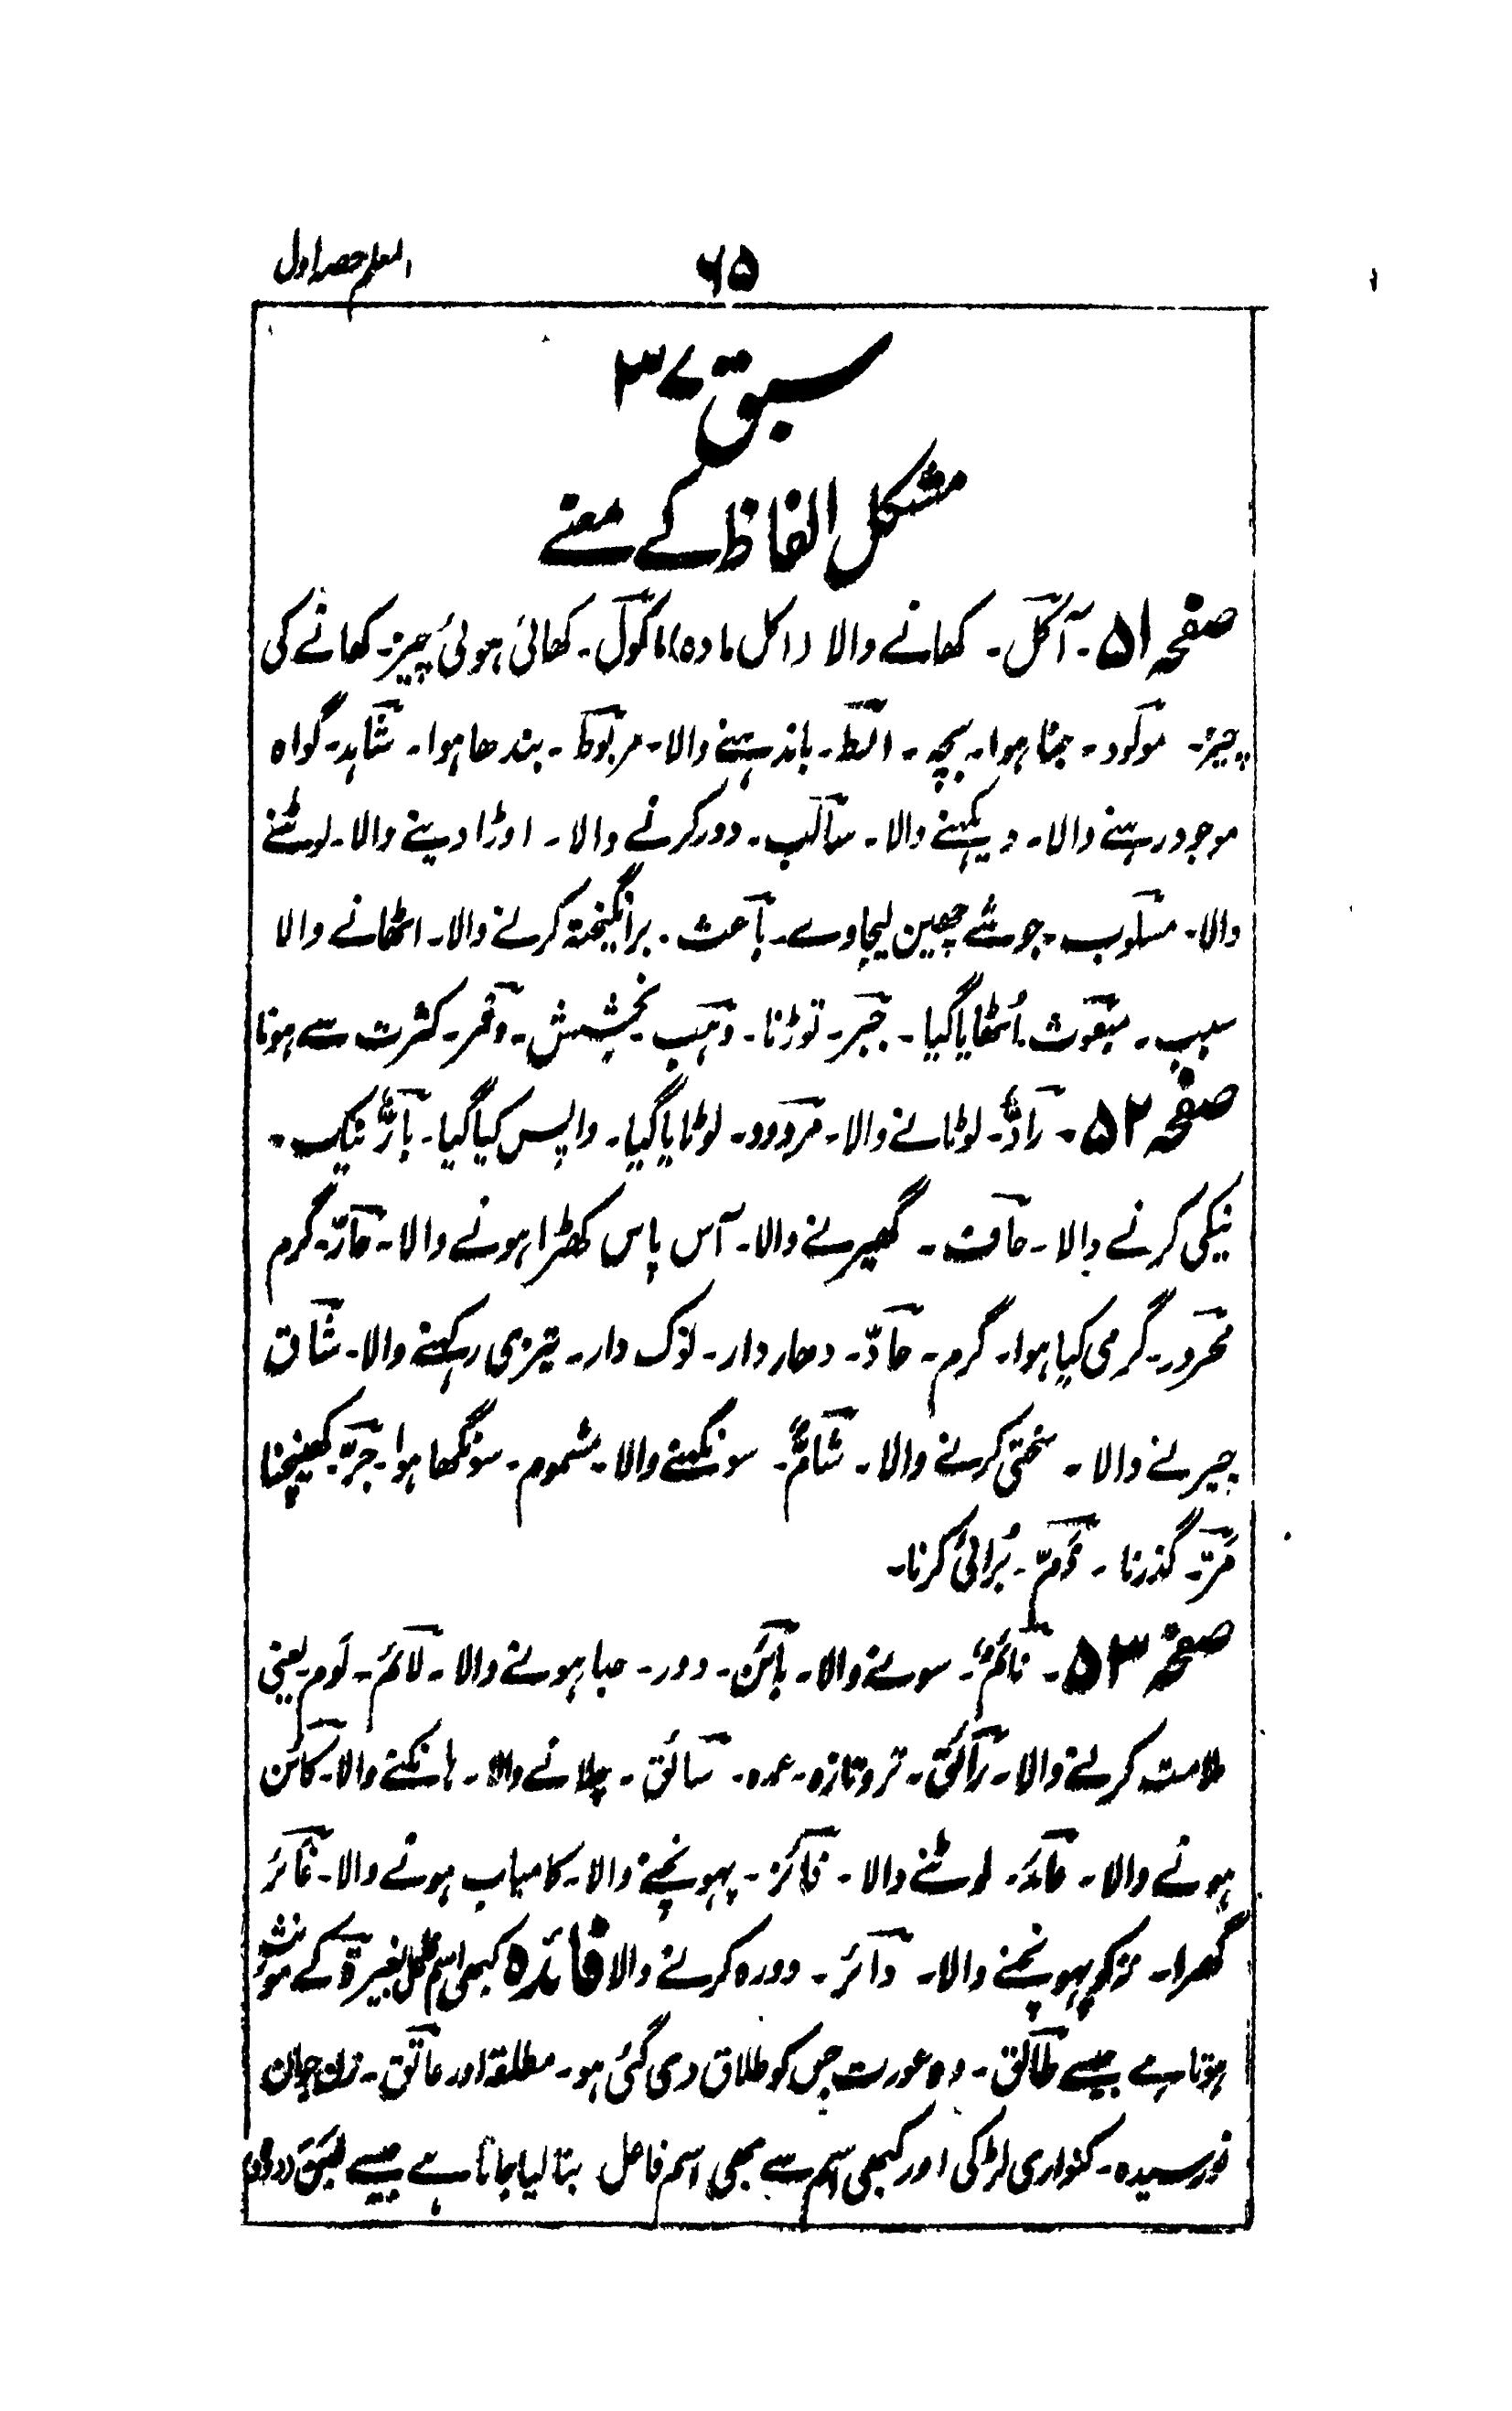 ۶۵ المعلم حصہ اول
سبق ۳۷
مشکل الفاظ کے معنے
صفحہ ۵۱۔ آکل۔ کھانے والا (اکل مادہ) ماکول۔ کھائی ہوئی چیز۔ کھانے کی
چیز۔ مولود۔ جنا ہوا۔ بچہ۔ رابط۔ باندہنے والا۔ مربوط۔ بندھا ہوا۔ شاہد۔ گواہ
موجود رہنے والا۔ دیکہنے والا۔ سالب۔ دور کرنے والا۔ اوڑا دینے والا۔ لوٹنے
والا۔ مسلوب۔ جو شے چھین لیجاوے۔ باعث۔ برانگیختہ کرنے والا۔ اٹھانے والا
سبب۔ مبعوث۔ اُٹھایا گیا۔ جبر۔ توڑنا۔ وہب۔ بخشش۔ وفر۔ کثرت سے ہونا
صفحہ ۵۲۔ رادٌّ۔ لوٹانے والا۔ مردود۔ لوٹایا گیا۔ واپس کیا گیا۔ بارٌّ نیک۔
نیکی کرنے والا۔ حاف۔ گھیرنے والا۔ آس پاس کھڑا ہونے والا۔ حارّ۔ گرم
محرور۔ گرمی کیا ہوا۔ گرم۔ حادّ۔ دھار دار۔ نوک دار۔ تیزی رکہنے والا۔ شاق
چیرنے والا۔ سختی کرنے والا۔ شامٌّ۔ سونگہنے والا۔ مشموم۔ سونگھا ہوا۔ جرّ۔ کھینچنا
مَرّ۔ گذرنا۔ ذمّ۔ بُرائی کرنا۔
صفحہ ۵۳۔ نائمٌ۔ سونے والا۔ بائن۔ دور۔ جدا ہونے والا۔ لائم۔ لَوم یعنی
ملامت کرنے والا۔ رائق۔ تروتازہ۔ عمدہ۔ سائق۔ چلانے والا۔ ہانکنے والا۔ کائن
ہونے والا۔ عائد۔ لوٹنے والا۔ فائز۔ پہونچنے والا۔ کامیاب ہونے والا۔ غائر
گھرا۔ کو پہونچنے والا۔ دائر۔ دورہ کرنے والا فائدہ کبھی اسم فاعل بغیر ۃ کے مونث
ہوتا ہے جیسے طالق۔ وہ عورت جس کو طلاق دی گئی ہو۔ مطلقہ اور عاتق۔ زن جوان
نورسیدہ۔ کنواری لڑکی اور کبھی اسم سے بھی اسم فاعل بنا لیا جاتا ہے جیسے لبن